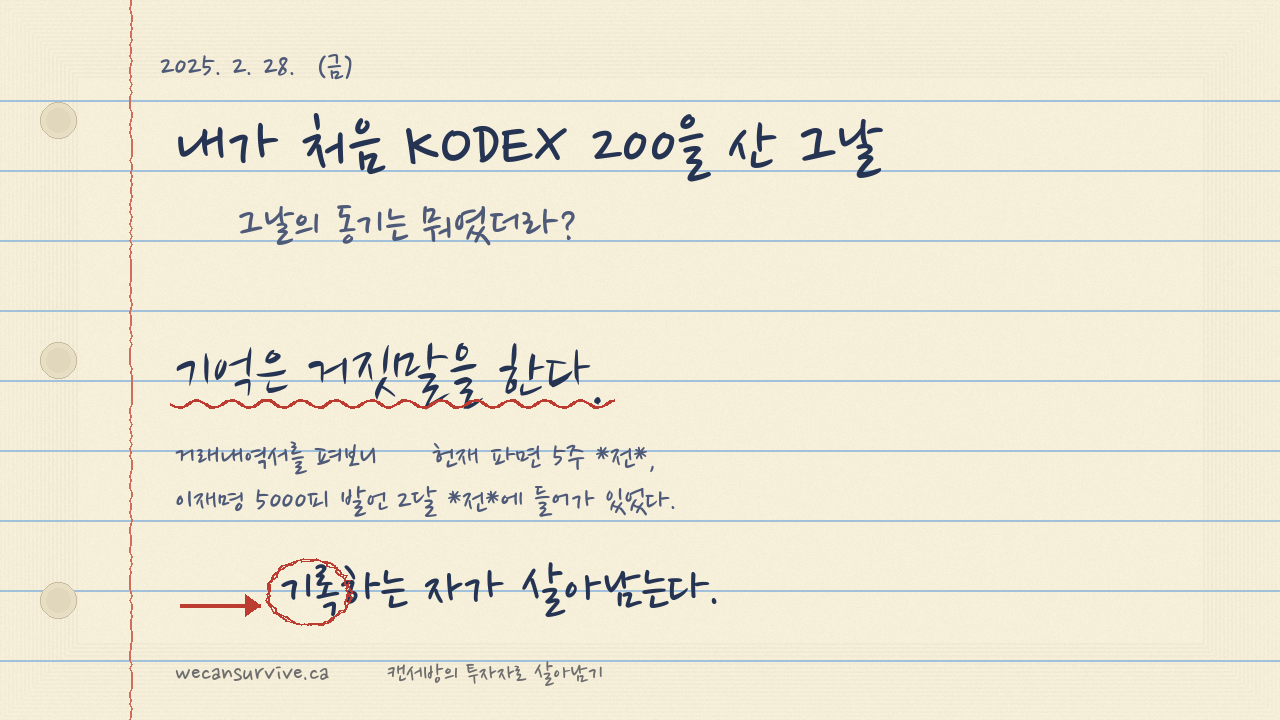 2025. 2. 28. (금)
내가 처음 KODEX 200을 산 그날
그날의 동기는 뭐였더라?
기억은 거짓말을 한다.
거래내역서를 펴보니 헌재 파면 5주 *전*,
이재명 5000피 발언 2달 *전*에 들어가 있었다.
기록하는 자가 살아남는다.
wecansurvive.ca 캔세방의 투자자로 살아남기